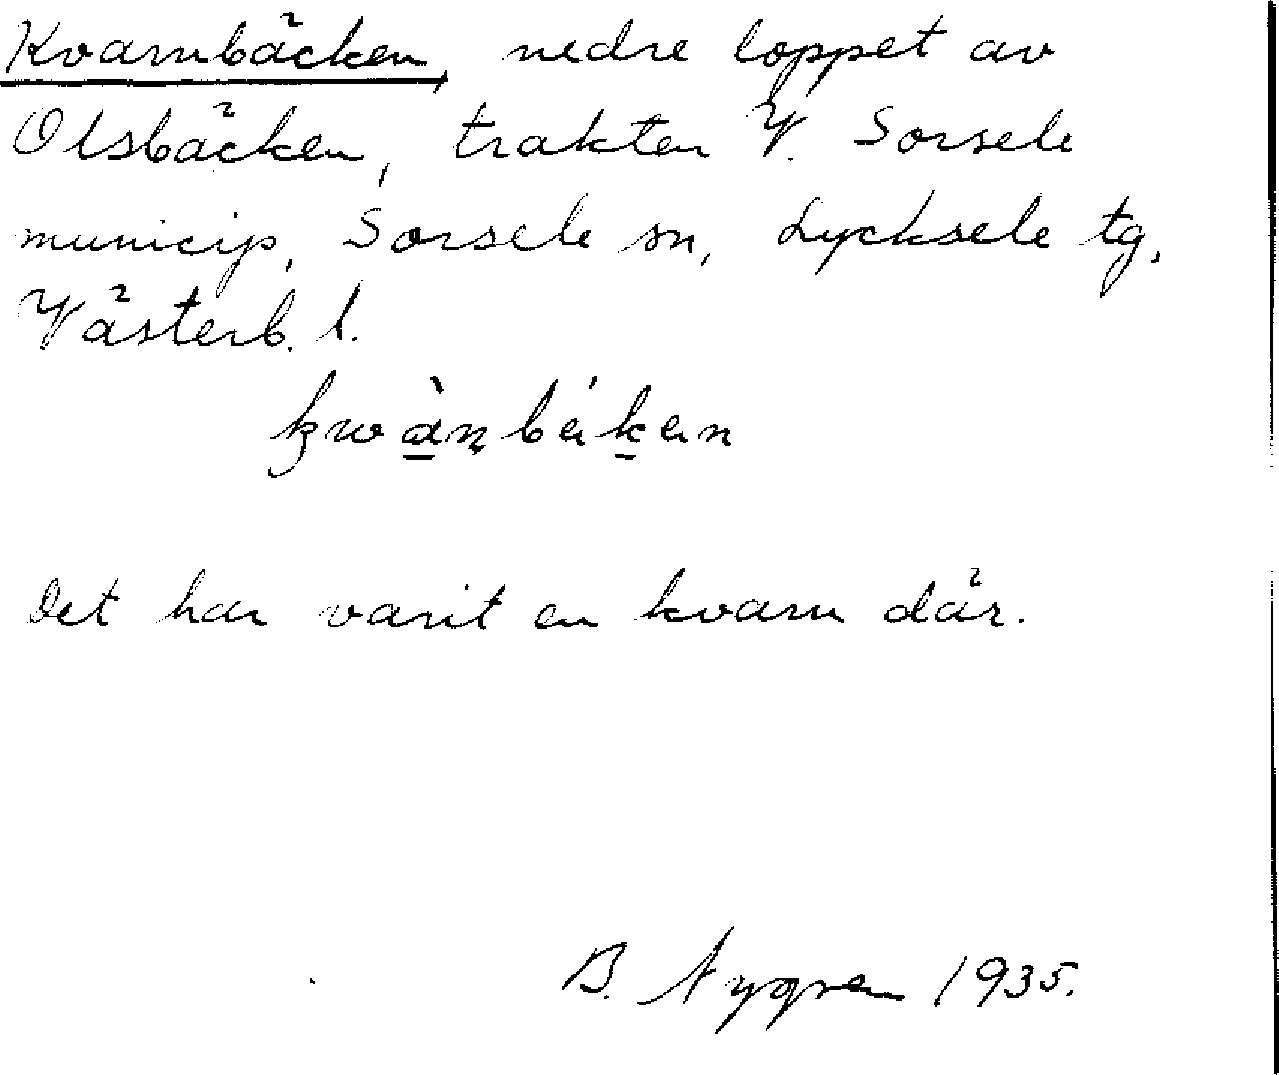 Kvarnbäcken, nedre loppet av
Olsbäcken, trakten V. Sorsele
municip, Sorsele sn, Lycksele tg,
Västerb. l.
Det har varit en kvarn där.
B. Nygren 1935.